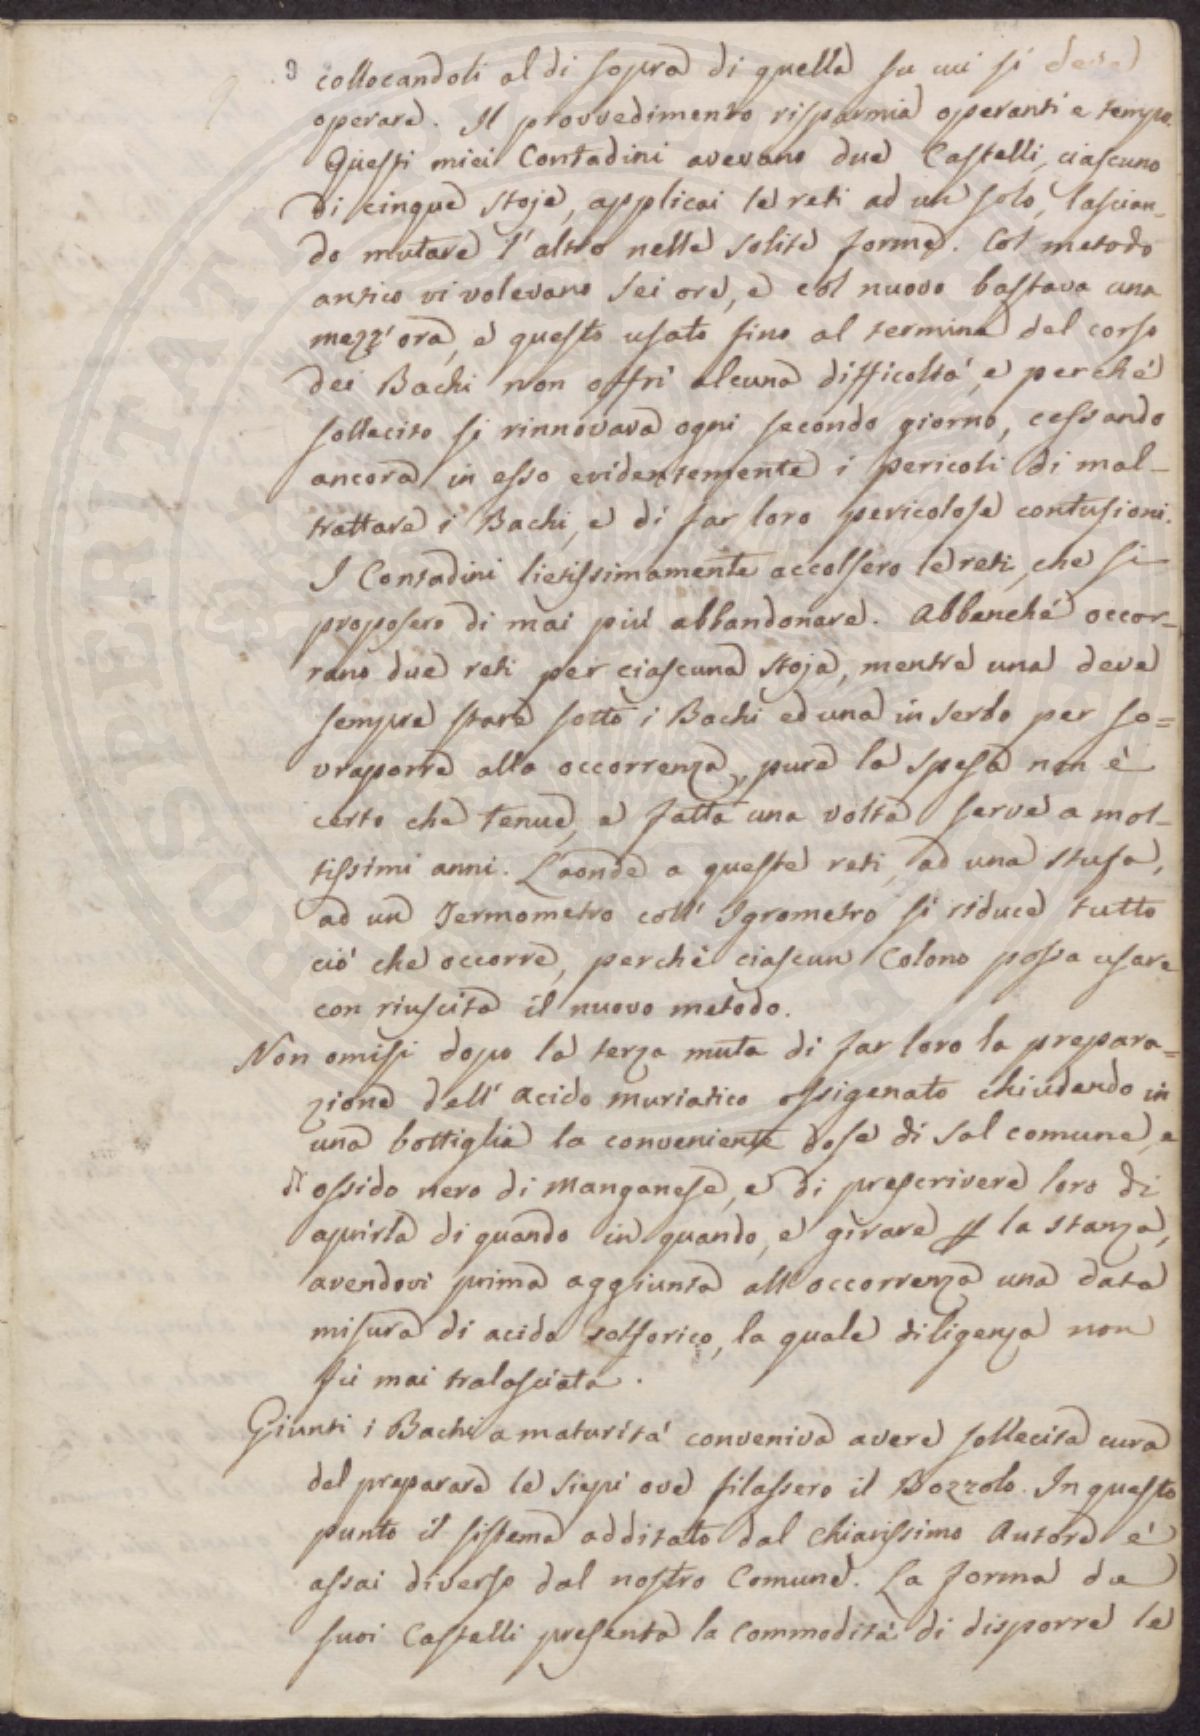 9
collocandoli al di sopra di quella su cui si deve
operare. Il provvedimento risparmia operanti e tempo.
Questi miei Contadini avevano due Castelli, ciascuno
di cinque stoje, applicai le reti ad un solo, lascian-
do mutare l'altro nelle solite forme. Col metodo
antico vi volevano sei ore, e col nuovo bastava una
mezz'ora, e questo usato fino al termine del corso
dei Bachi non offrì alcuna difficoltà, e perché
sollecito si rinnovava ogni secondo giorno, cessando
ancora in esso evidentemente i pericoli di mal-
trattare i Bachi, e di far loro pericolose contusioni.
I Contadini lietissimamente accolsero le reti, che si
proposero di mai più abbandonare. Abbenché occor-
rano due reti per ciascuna stoja, mentre una deve
sempre stare sotto i Bachi ed una in serbo per so=
vraporre alla occorrenza, pure la spesa non è
certo che tenue, e fatta una volta serve a mol-
tissimi anni. Laonde a queste reti, ad una stufa,
ad un Termometro coll' Igrometro si riduce tutto
ciò che occorre, perché ciascun Colono possa usare
con riuscita il nuovo metodo.
Non omisi dopo la terza muta di far loro la prepara=
zione dell' acido muriatico ossigenato chiudendo in
una bottiglia la conveniente dose di sal comune, e
di ossido nero di Manganese, e di prescrivere loro di
aprirla di quando in quando, e girare p la stanza,
avendovi prima aggiunta all'occorrenza una data
misura di acido solforico, la quale diligenza non
fù mai tralasciata.
Giunti i Bachi a maturità conveniva avere sollecita cura
del preparare le siepi ove filassero il Bozzolo. In questo
punto il sistema additato dal chiarissimo Autore è
assai diverso dal nostro Comune. La forma de
suoi Castelli presenta la commodità di disporre le
PROSPERITATI PUBLICAE AUGENDAE